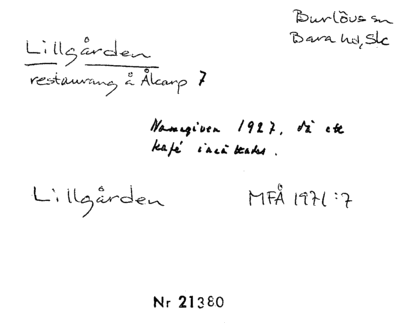 Burlövs sn
Bara hd, Sk
Lillgården
restaurang å Åkarp 7
Namngiven 1927, då ett
kafé inrättades.
Lillgården MFÅ 1971:7
Nr 21380